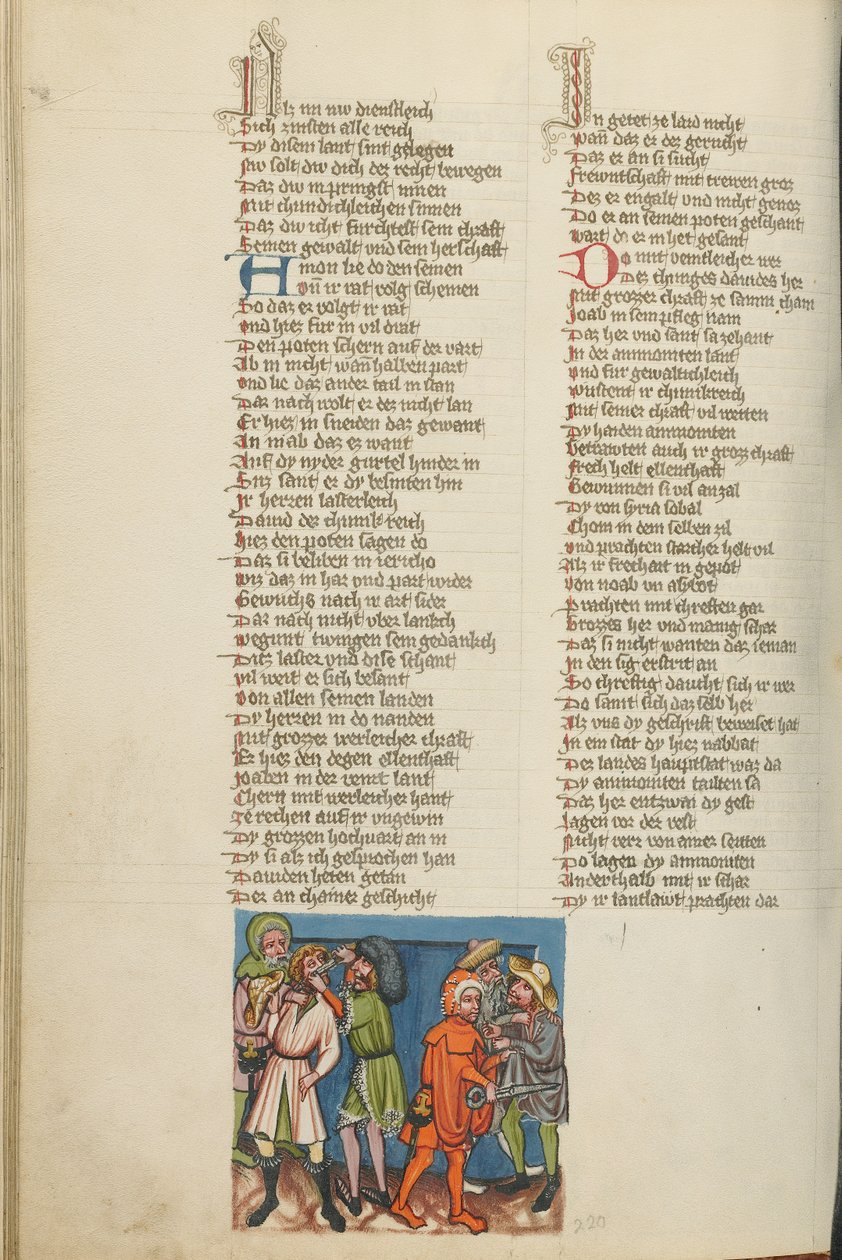 Alz im nw dienstleich
Sich zinsten alle reich
Dy disem lant sint gelegen
Nw solt dw dich dez recht bewegen
Daz dw in pringst innen
Mit chundichleichen sinnen
Daz dw icht furchtest sein chraft
Seinen gewalt vnd sein herschaft
Amon lie do den seinen
Vnd ir rat volg scheinen
So daz er volgt ir rat
Vnd hiez fur in vil drat
Den poten schern auf der vart
Ab in nicht wan halben part
Vnd lie daz ander tail in stan
Dar nach wolt er dez nicht lan
Er hiez in sneiden daz gewant
In in ab daz ez want
Auf dy nyder gurtel hinder in
Suz sant er dy besniten hin
Ir herren lasterleich
Dauid der chunik reich
Hiez den poten sagen do
Daz si beliben in iericho
Biz daz in har vnd part wider
Gewuchs nach ir art sider
Dar nach nicht vber lankch
Begunt twingen sein gedankch
Ditz laster vnd dise schant
Vil weit er sich besant
Von allen seinen landen
Dy herren im do nanden
Mit grozzer werleicher chraft
Er hiez den degen ellenthaft
Joaben in der veint lant
Chern mit werleicher hant
Ze rechen auf ir vngewin
Dy grozzen hochuart an in
Dy si alz ich gesprochen han
Dauiden heten getan
Der an chainer geschicht
In getet ze laid nicht
Wan daz er dez gerucht
Daz er an si sucht
Frewntschaft mit trewen groz
Dez er engalt vnd nicht genoz
Do er an seinen poten geschant
Wart do er in het gesant
Do mit veintleicher wer
Dez chuniges dauides her
Mit grozzer chraft ze samm cham
Joab in sein pfleg nam
Daz her vnd sant sa zehant
In der ammoniten lant
Vnd fur gewaltichleich
Wustent ir chunikreich
Mit seiner chraft vil weiten
Dy haiden ammoniten
Betrawten auch ir grozz chraft
Frech helt ellenthaft
Gewunnen si vil an zal
Dy von syria sobal
Chom in dem selben zil
Vnd prachten starcher helt vil
Alz ir frechart in gepot
Von noab vn abyot
Prachten mit chreften gar
Grozzes her vnd manig schar
Daz si nicht wanten daz ieman
In den sig erstrit an
So chreftig daucht sich ir wer
Do samt sich daz selb her
Alz vns dy geschrift beweiset hat
In ein stat dy hiez nabbat
Der landes hauptstat waz da
Dy ammoniten tailten sa
Daz her entzwai dy gest
Lagen vor der vest
Nicht verr von ainer seitten
Do lagen dy ammoniten
Anderthalb mit ir schar
Dy ir lantlawt prachten dar
220